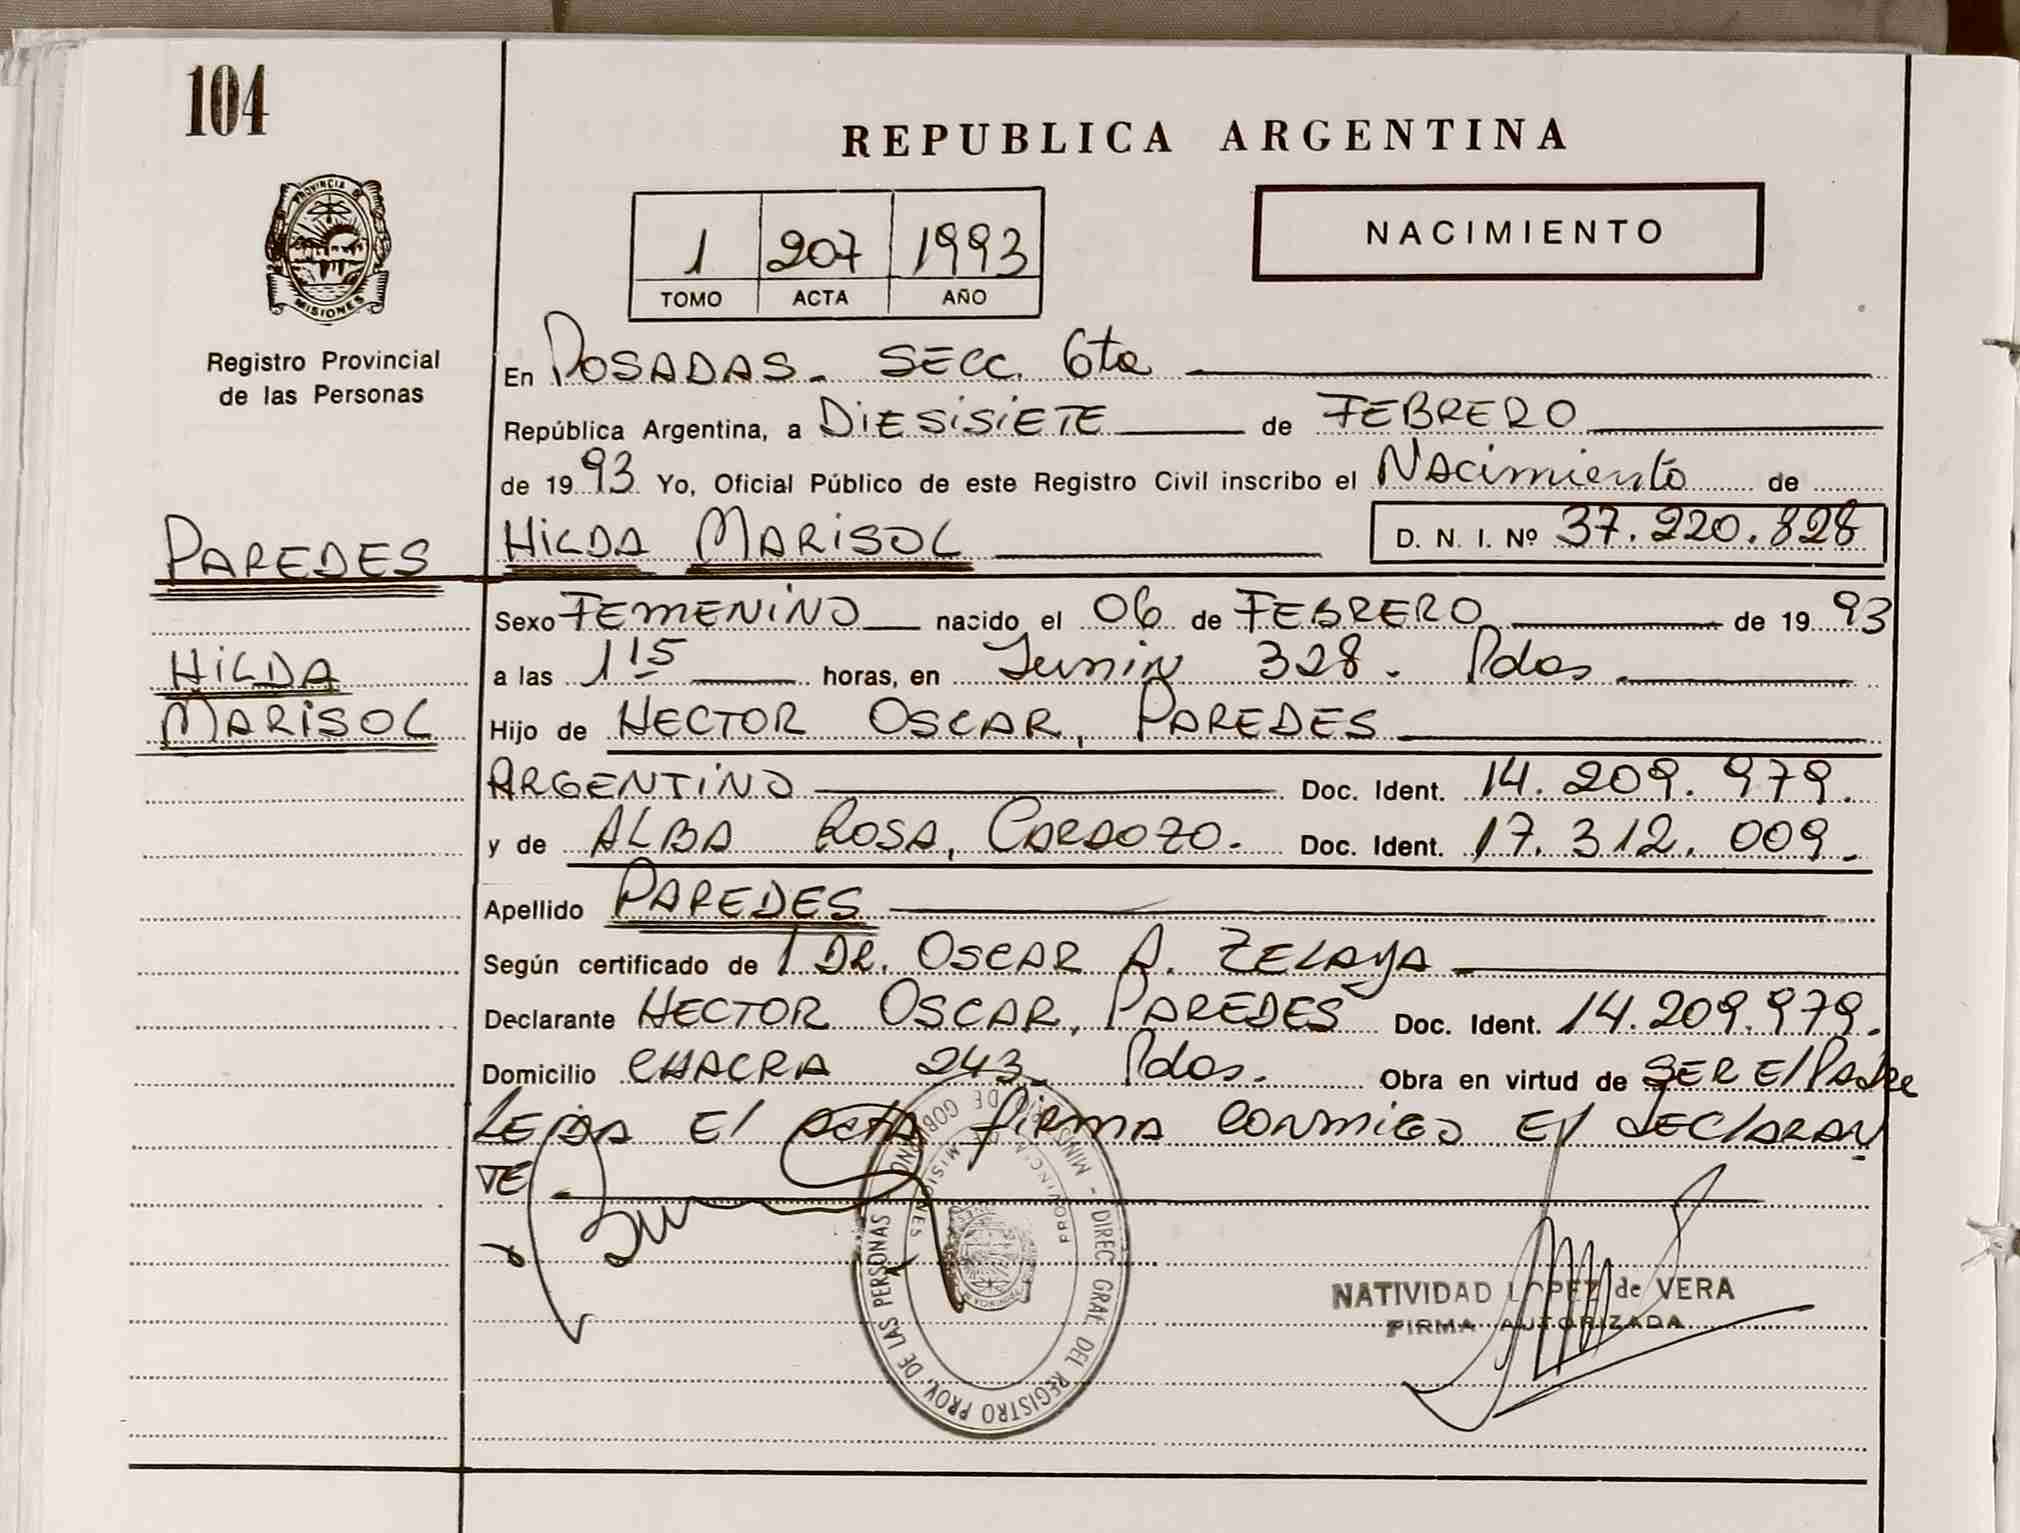 104
REPUBLICA ARGENTINA
PROVINCIA DE
MISIONES
NACIMIENTO
1 207 1993
TOMO ACTA AÑO
Registro Provincial
de las Personas
En POSADAS. SECC. 6ta
República Argentina, a DiESiSiETE de FEBRERO
de 1993 Yo, Oficial Público de este Registro Civil inscribo el NAcimiento de
PAREDES HiLDA MARiSOL D. N. I. Nº 37.220.828
Sexo FEMENiNO nacido el 06 de FEBRERO de 1993
HiLDA a las 1 15 horas, en Junin 328. Pdas.
MARiSOL Hijo de HECTOR OSCAR, PAREDES
ARGENTiNO Doc. Ident. 14.209.979.
y de ALBA ROSA, CARDOZO. Doc. Ident. 17.312.009.
Apellido PAREDES
Según certificado de 1 DR. OSCAR A. ZELAyA
Declarante HECTOR OSCAR, PAREDES Doc. Ident. 14.209.979.
Domicilio CHACRA 243. Pdas. Obra en virtud de SER El PAdRe
LEiDA El ActA fiRMA CONMiGO El dEClARAN
TE
MINISTERIO DE GOBIERNO - DIREC. GRAL. DEL REGISTRO PROV. DE LAS PERSONAS
PROVINCIA DE MISIONES
NATIVIDAD LOPEZ de VERA
FIRMA AUTORIZADA